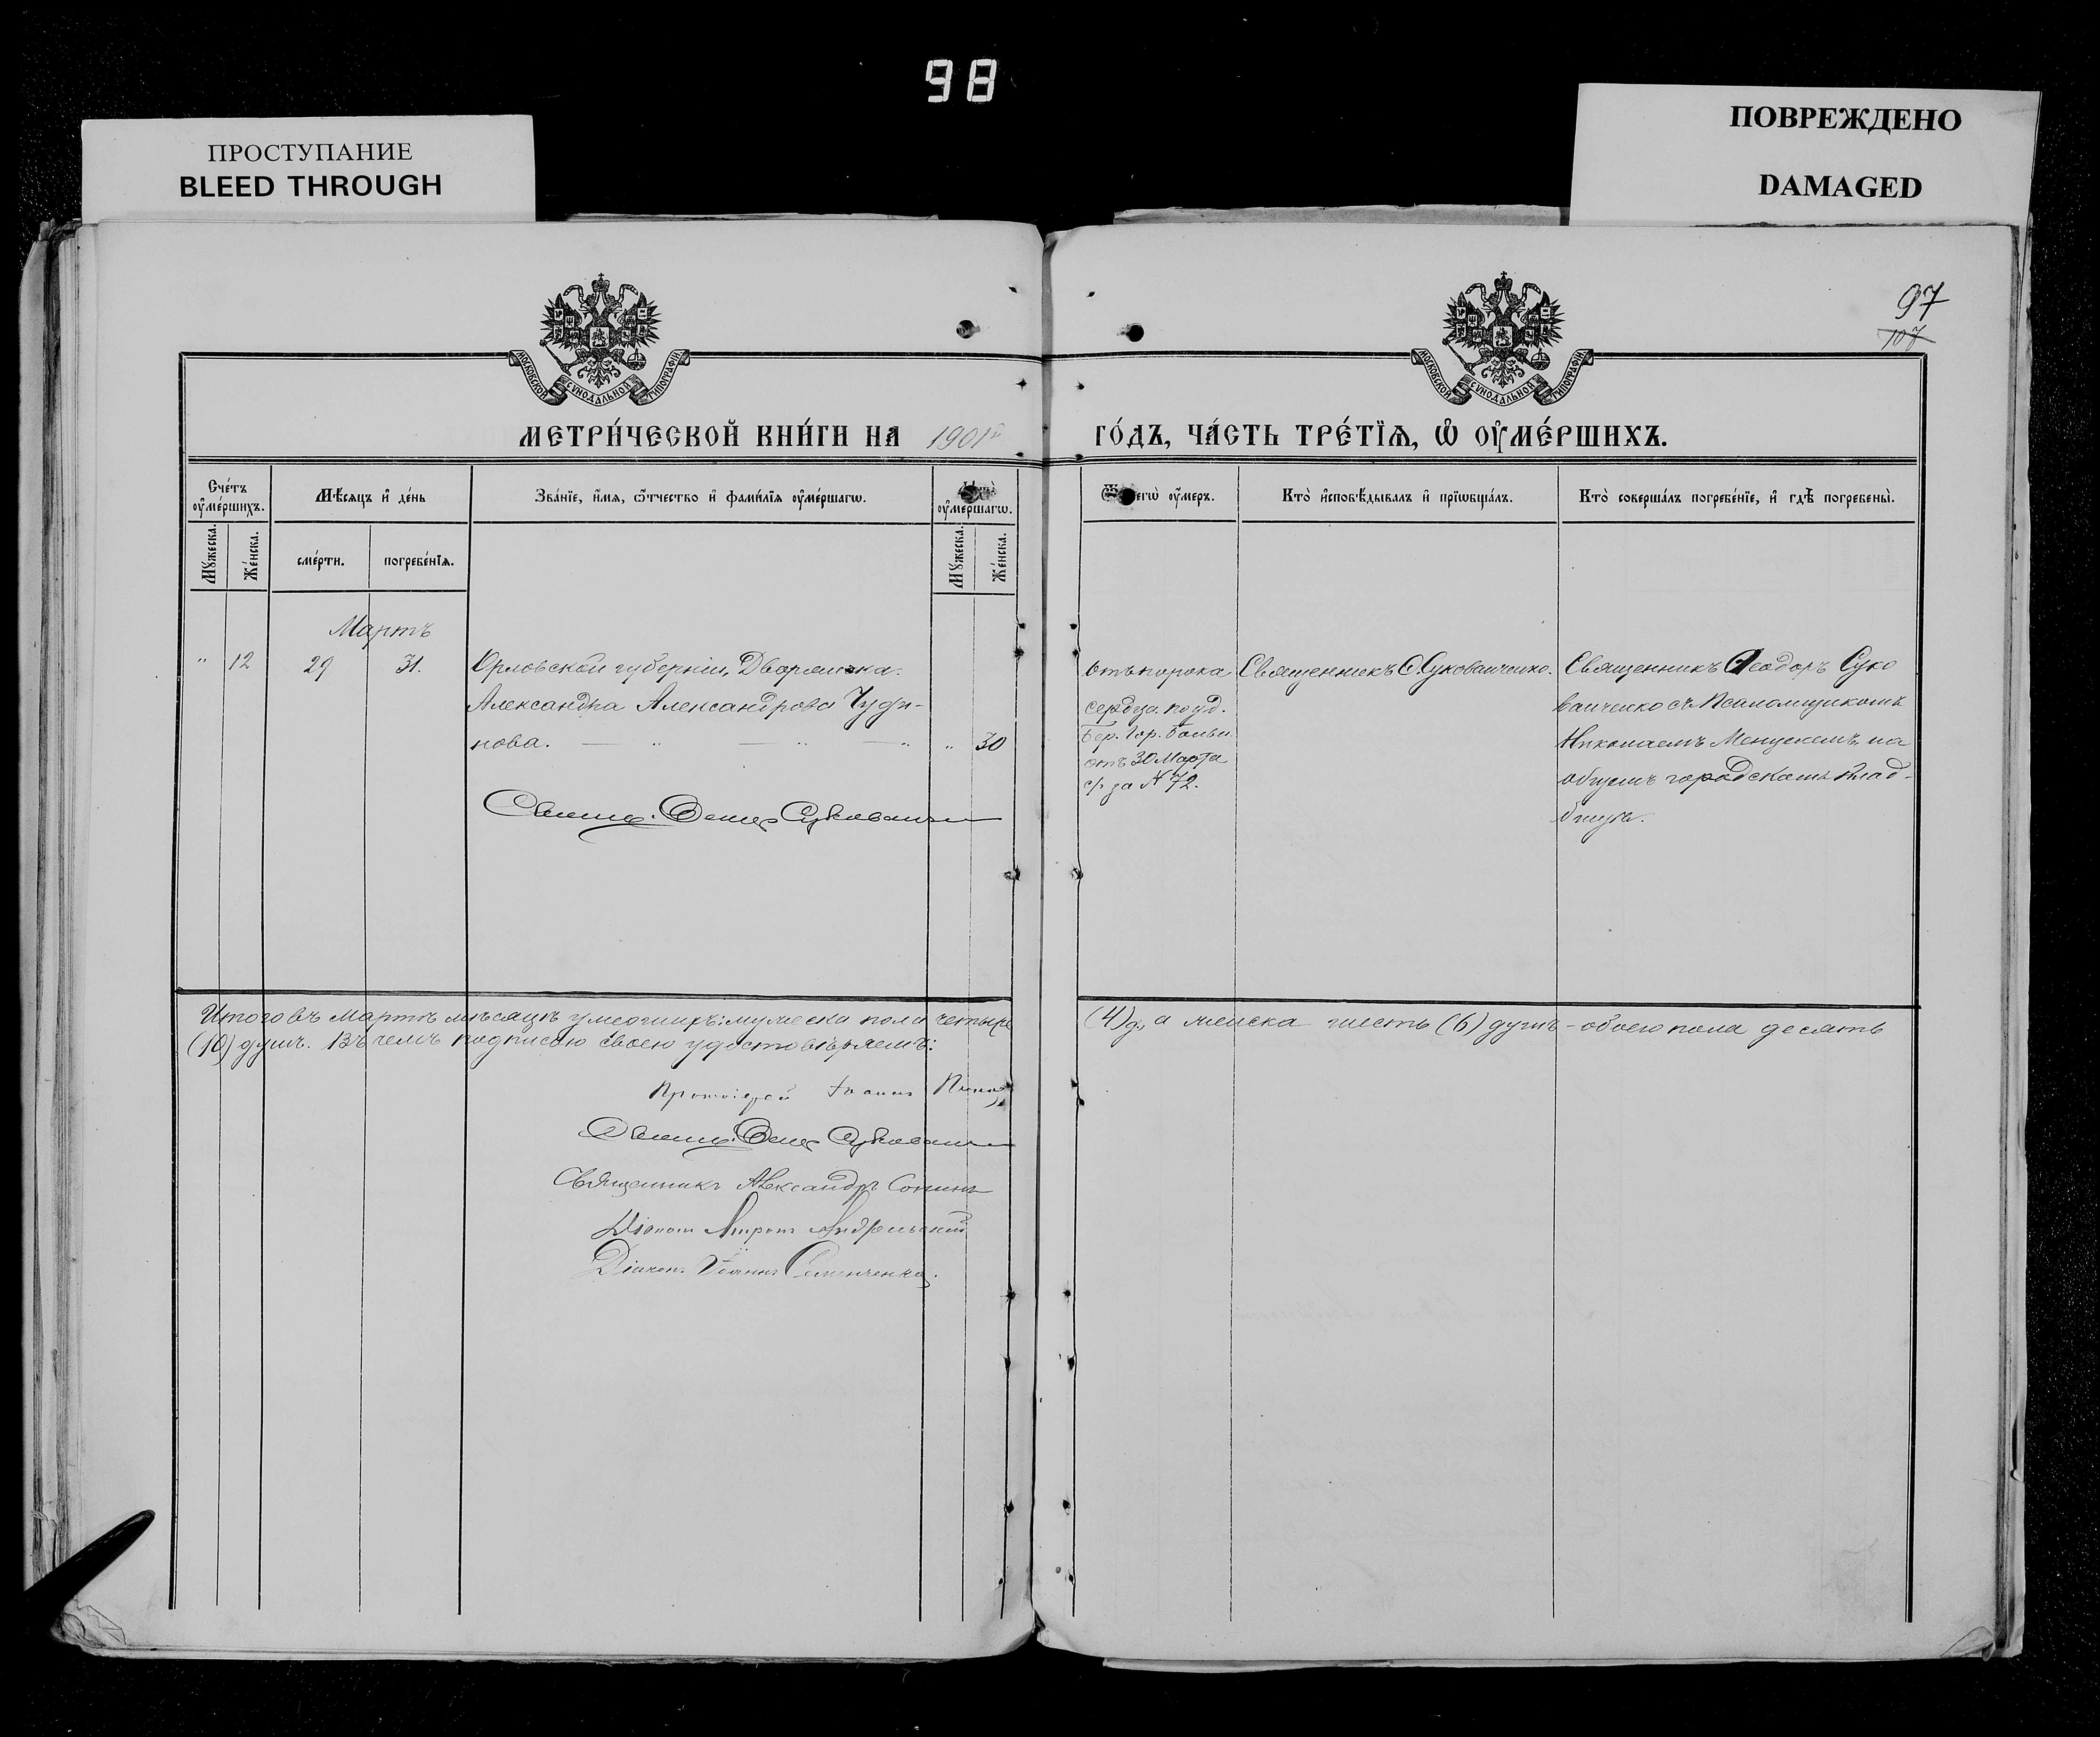 98
ПРОСТУПАНИЕ
BLEED THROUGH
ПОВРЕЖДЕНО
DAMAGED
97
107
МОСКОВСКОЙ СѴНОДАЛЬНОЙ ТИПОГРАФІИ
МОСКОВСКОЙ СѴНОДАЛЬНОЙ ТИПОГРАФІИ
МЕТРИ́ЧЕСКОЙ КНИ́ГИ НА 1901й ГО́ДЪ, ЧА́СТЬ ТРЕ́ТЇѦ, Ѿ ОУ҆МЕ́РШИХЪ.
Сче́тъ оу҆ме́ршихъ.
Мꙋ́жеска.
Же́нска.
Мѣ́сѧцъ и҆ де́нь
сме́рти.
погребе́нїѧ.
Зва́нїе, и҆́мѧ, ѻ҆́тчество и҆ фами́лїѧ оу҆ме́ршагѡ.
оу҆ме́ршагѡ.
Мꙋ́жеска.
Же́нска.
оу҆́меръ.
Кто̀ и҆сповѣ́дывалъ и҆ прїѡбща́лъ.
Кто̀ соверша́лъ погребе́нїе, и҆ гдѣ̀ погребены̀.
Мартъ
" 12 29 31.
Орловской губерніи, Дворянка.
Александра Александрова Чуди-
нова. — " — " — " " 30
Отъ порока
сердца. по уд.
Бер. Гор. больн
отъ 30 Марта
с/г за № 72.
Священникъ Ѳ. Сукованченко.
Священникъ Ѳеодоръ Суко
ванченко съ Псаломщикомъ
Николаемъ на
общемъ городскомъ клад-
бищѣ.
Итого въ Мартѣ мѣсяцѣ умерших: мужеска пола четыре (4) д, а женска шесть (6) душъ - обоего пола десять
(10) душъ. Въ чемъ подписью своею удостовѣряемъ:
Протоіерей Іоаннъ
Священникъ Александръ Сонинъ
Діаконъ
Діакон. Іоаннъ Семенченко.